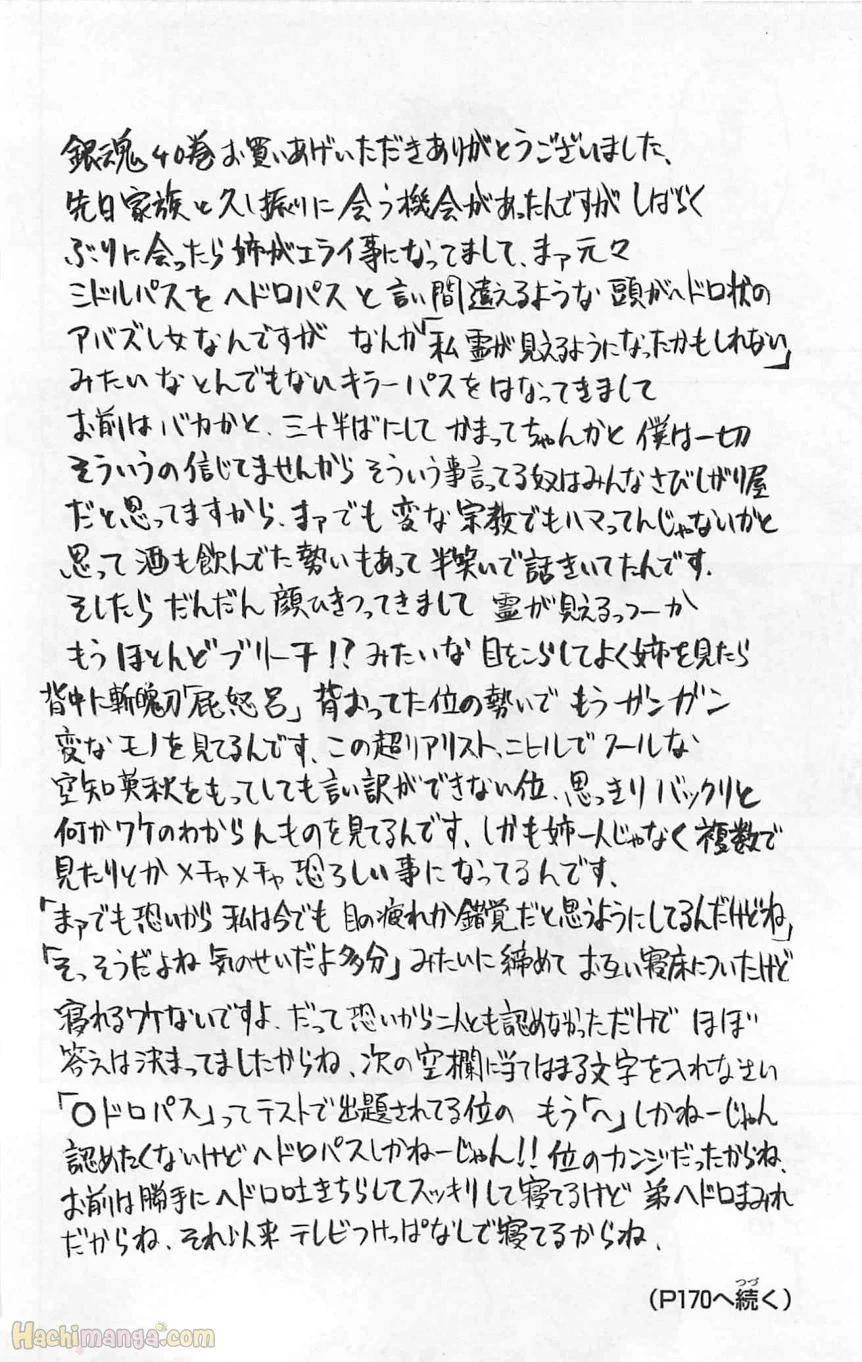 銀魂40巻お買いあげいただきありがとうございました、
先日家族と久し振りに会う機会があったんですがしばらく
ぶりに会ったら姉がエライ事になってまして、まァ元々
ミドルパスをヘドロパスと言い間違えるような頭がヘドロ状の
アバズレ女なんですが なんか「私霊が見えるようになったかもしれない」
みたいなとんでもないキラーパスをはなってきまして
お前はバカかと、三十半ばにして かまってちゃんかと 僕は一切
そういうの信じてませんから そういう事言ってる奴はみんなさびしがり屋
だと思ってますから、まァでも 変な宗教でもハマってんじゃないかと
思って 酒も飲んでた勢いもあって 半笑いで話きいてたんです、
そしたら だんだん 顔ひきつってきまして 霊が見えるっつーか
もう ほとんどブリーチ!? みたいな 目をこらしてよく姉を見たら
背中に斬魄刀「屁怒呂」背おってた位の勢いで もうガンガン
変なモノを見てるんです、この超リアリスト、ニヒルでクールな
空知英秋をもってしても言い訳ができない位、思っきりバックリと
何かワケのわからんものを見てるんです、しかも姉一人じゃなく複数で
見たりとか メチャメチャ恐ろしい事になってるんです、
「まァでも恐いから 私は今でも 目の疲れか錯覚だと思うようにしてるんだけどね」
「そっそうだよね 気のせいだよ多分」みたいに締めて お互い寝床についたけど
寝れるワケないですよ、だって恐いから二人とも認めなかっただけで ほぼ
答えは決まってましたからね、次の空欄に当てはまる文字を入れなさい
「〇ドロパス」ってテストで出題されてる位の もう「ヘ」しかねーじゃん
認めたくないけどヘドロパスしかねーじゃん!!位のカンジだったからね、
お前は勝手にヘドロ吐きちらしてスッキリして寝てるけど 弟ヘドロまみれ
だからね、それ以来テレビつけっぱなしで寝てるからね、
(P170へ続く)
つづ
Hachimanga.com